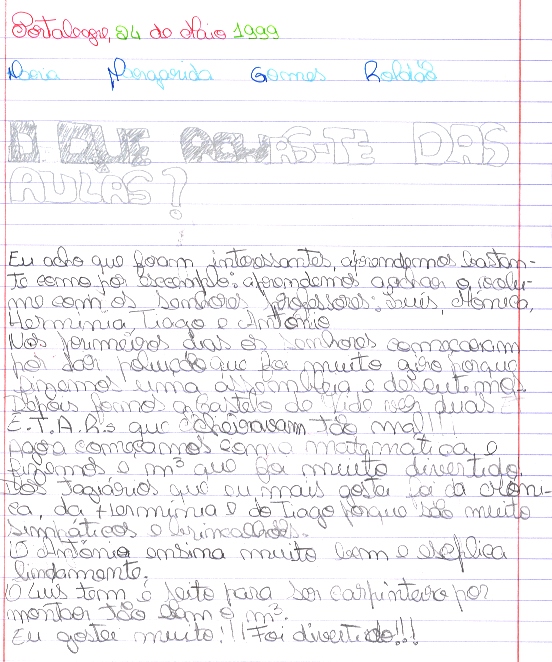 Portalegre, 24 de Maio 1999
Maria Margarida Gomes Roldão
O QUE ACHAS-TE DAS
AULAS?
Eu acho que foram interessantes, aprendemos bastan-
te como por exemplo: aprendemos a achar o volu-
me com os senhores professores: Luís, Mónica,
Hermínia Tiago e António
Nos primeiros dias os senhores começaram
por dar poluição que foi muito giro porque
fizemos uma assembleia e descutimos
Depois fomos a Castelo de Vide ver duas
E.T.A.R.s que cheiravam tão mal!!!
Agora começamos com a matemática e
fizemos o m³ que foi muito divertido.
Dos tagiários que eu mais gostei foi da Móni-
ca, da Hermínia e do Tiago porque são muito
simpáticos e brincalhões.
O António ensina muito bem e esplica
lindamente.
O Luís tem geito para ser carpinteiro por
montar tão bem o m³.
Eu gostei muito!!! Foi divertido!!!